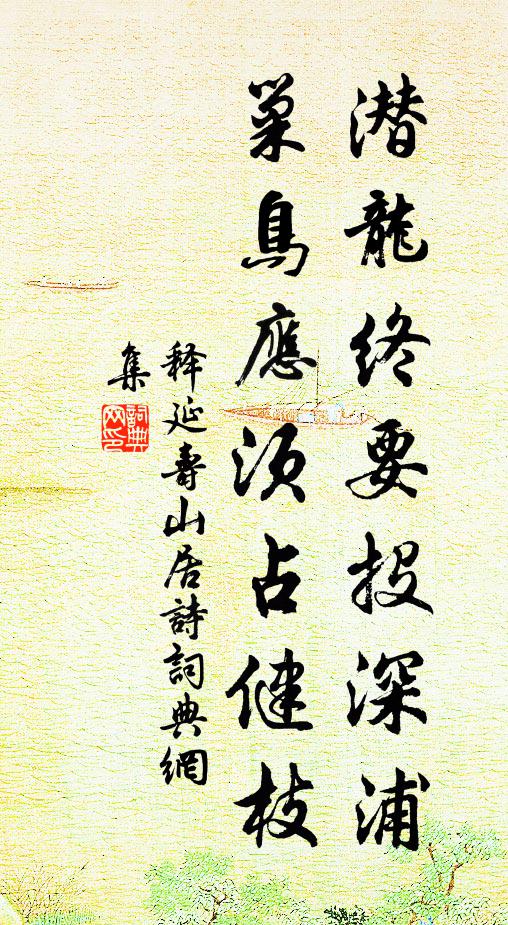 潛龍終要投深浦
巢鳥應須占健枝
释延壽山居詩詞典網
集
詞典網印